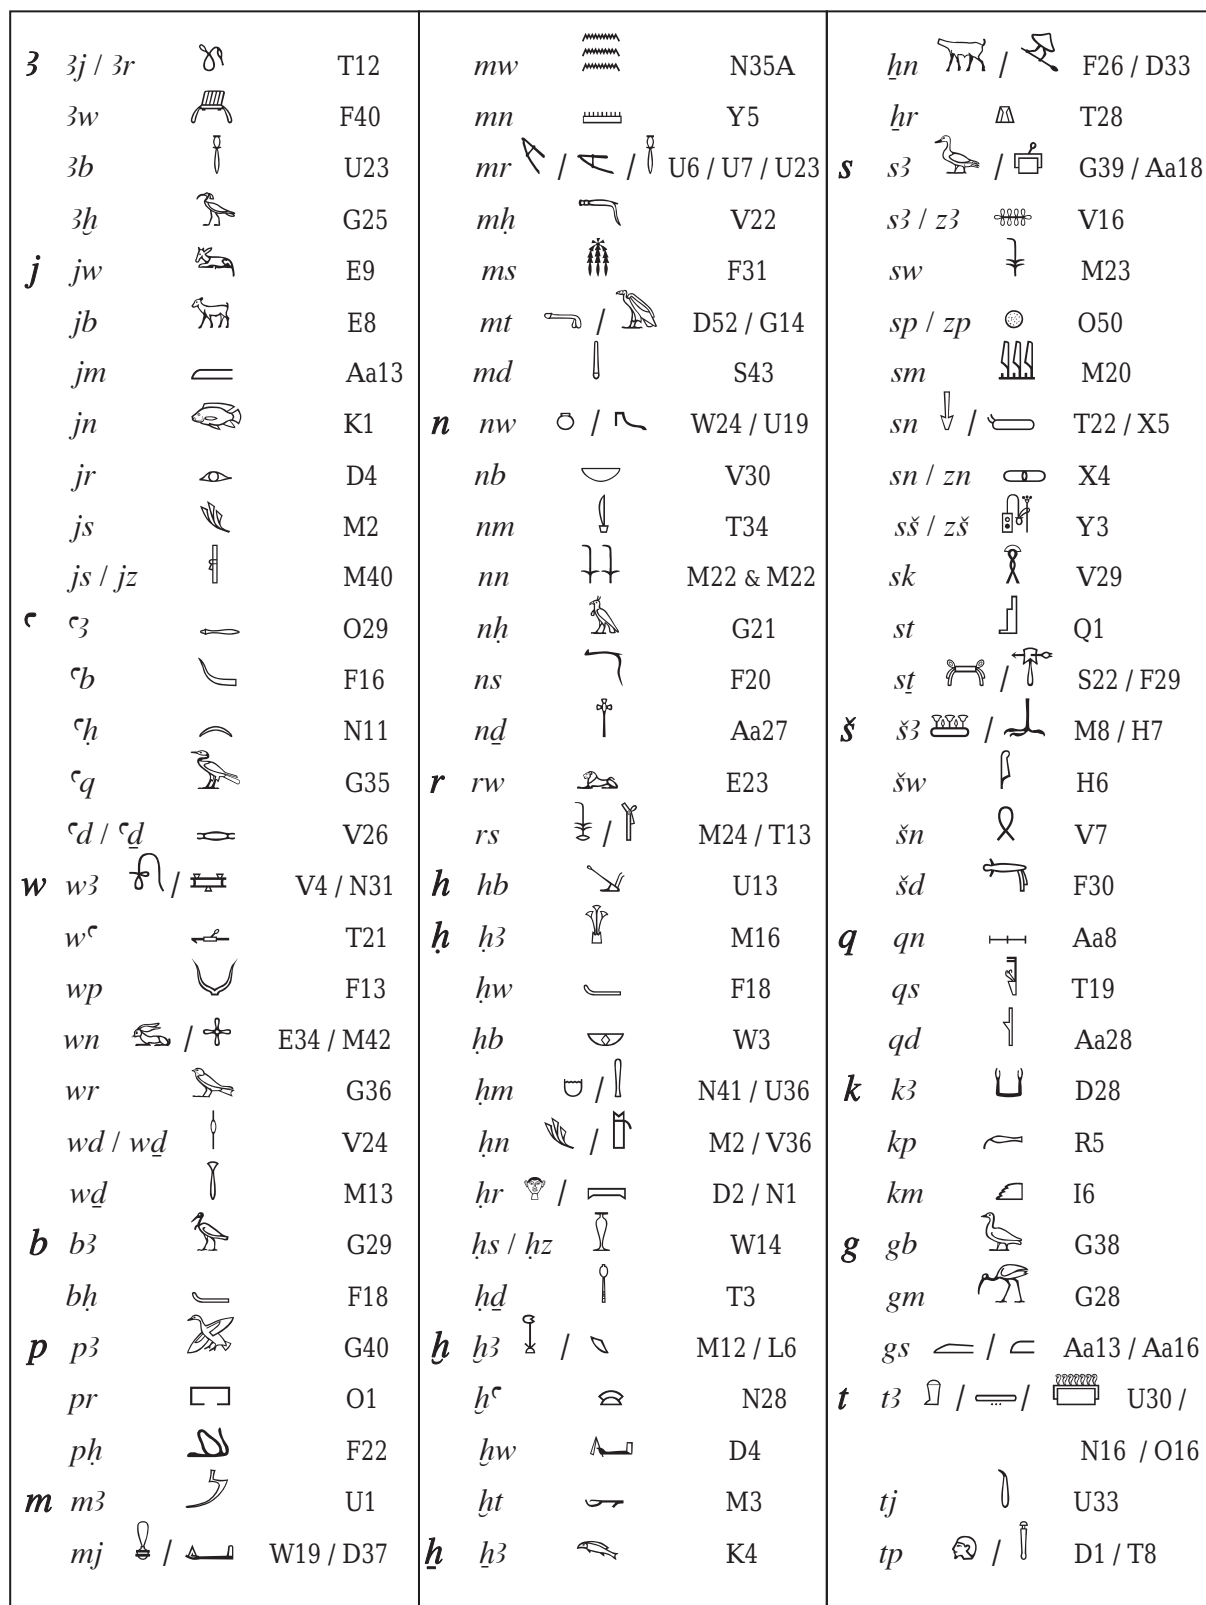 ꜣ ꜣj / ꜣr T12
ꜣw F40
ꜣb U23
ꜣḫ G25
j jw E9
jb E8
jm Aa13
jn K1
jr D4
js M2
js / jz M40
ꜥ ꜥꜣ O29
ꜥb F16
ꜥḥ N11
ꜥq G35
ꜥd / ꜥḏ V26
w wꜣ / V4 / N31
wꜥ T21
wp F13
wn / E34 / M42
wr G36
wd / wḏ V24
wḏ M13
b bꜣ G29
bḥ F18
p pꜣ G40
pr O1
pḥ F22
m mꜣ U1
mj / W19 / D37
mw N35A
mn Y5
mr / / U6 / U7 / U23
mḥ V22
ms F31
mt / D52 / G14
md S43
n nw / W24 / U19
nb V30
nm T34
nn M22 & M22
nḥ G21
ns F20
nḏ Aa27
r rw E23
rs / M24 / T13
h hb U13
ḥ ḥꜣ M16
ḥw F18
ḥb W3
ḥm / N41 / U36
ḥn / M2 / V36
ḥr / D2 / N1
ḥs / ḥz W14
ḥḏ T3
ḫ ḫꜣ / M12 / L6
ḫꜥ N28
ḫw D4
ḫt M3
ẖ ẖꜣ K4
ẖn / F26 / D33
ẖr T28
s sꜣ / G39 / Aa18
sꜣ / zꜣ V16
sw M23
sp / zp O50
sm M20
sn / T22 / X5
sn / zn X4
sš / zš Y3
sk V29
st Q1
sṯ / S22 / F29
š šꜣ / M8 / H7
šw H6
šn V7
šd F30
q qn Aa8
qs T19
qd Aa28
k kꜣ D28
kp R5
km I6
g gb G38
gm G28
gs / Aa13 / Aa16
t tꜣ / / U30 /
N16 / O16
tj U33
tp / D1 / T8